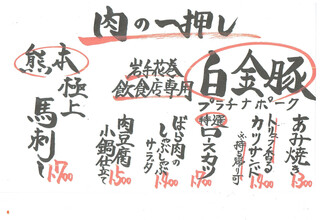 肉の一押し
岩手花巻
飲食店専用
白金豚
プラチナポーク
あみ焼き
1.300
トリュフ香る
カツサンド
※お持ち帰り可
1.900
特選
ロースカツ
1.700
ばら肉の
しゃぶしゃぶ
サラダ
1.400
肉豆腐
小鍋仕立て
1.500
熊本
極上
馬刺し
1.700